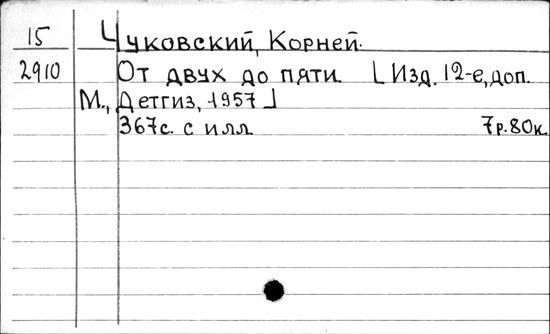 15 Чуковский, Корней.
2910 От двух до пяти. [Изд. 12-е, доп.
М., Детгиз, 1957]
367с. с илл. 7р.80к.